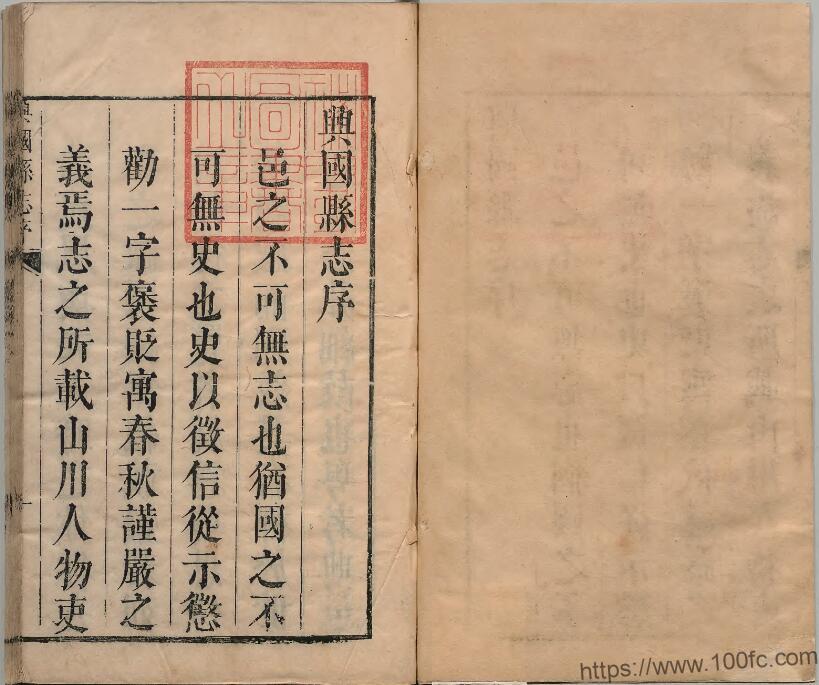 興國縣志序
邑之不可無志也猶國之不
可無史也史以徵信從示懲
勸一字褒貶寓春秋謹嚴之
義焉志之所載山川人物吏
興國縣志序
一
https://www.100fc.com